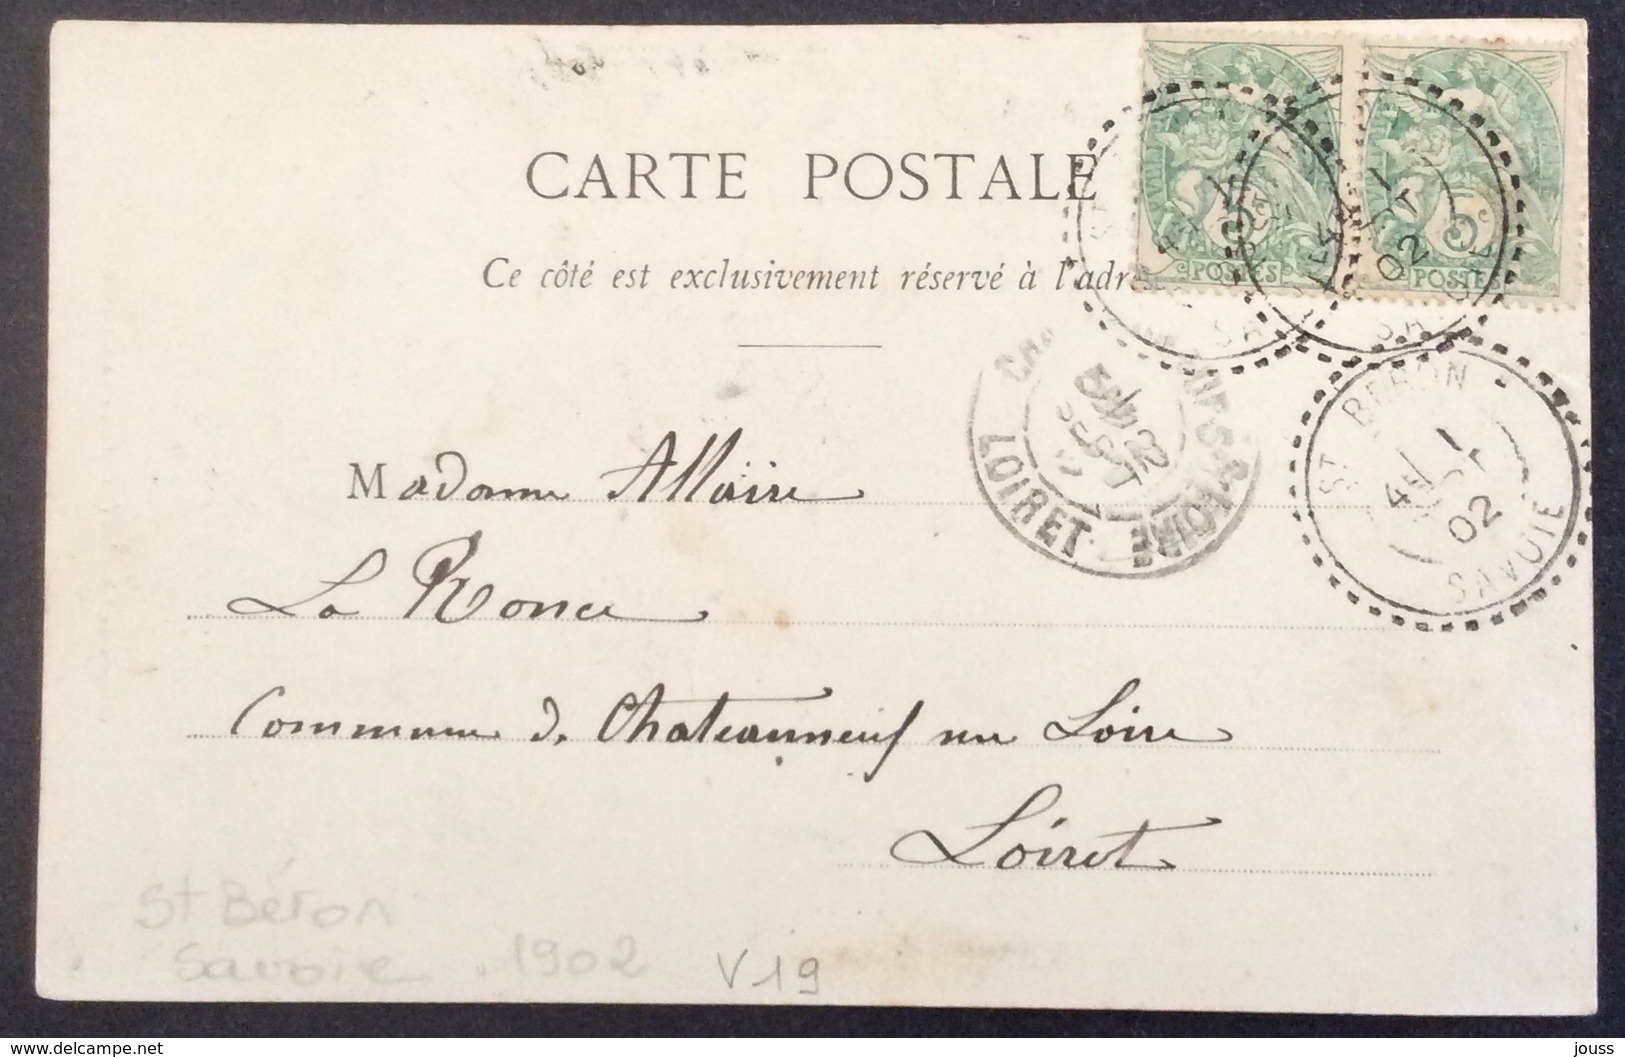 CARTE POSTALE
Ce côté est exclusivement réservé à l'adre
5c
POSTES
5c
POSTES
02
SAVOIE
LOIRET
ST BERON
4E 1
02
SAVOIE
Madame Allaire
La Ronce
Commune de Chateauneuf sur Loire
Loiret
St Béron
Savoie . 1902
V19
www.delcampe.net
jouss